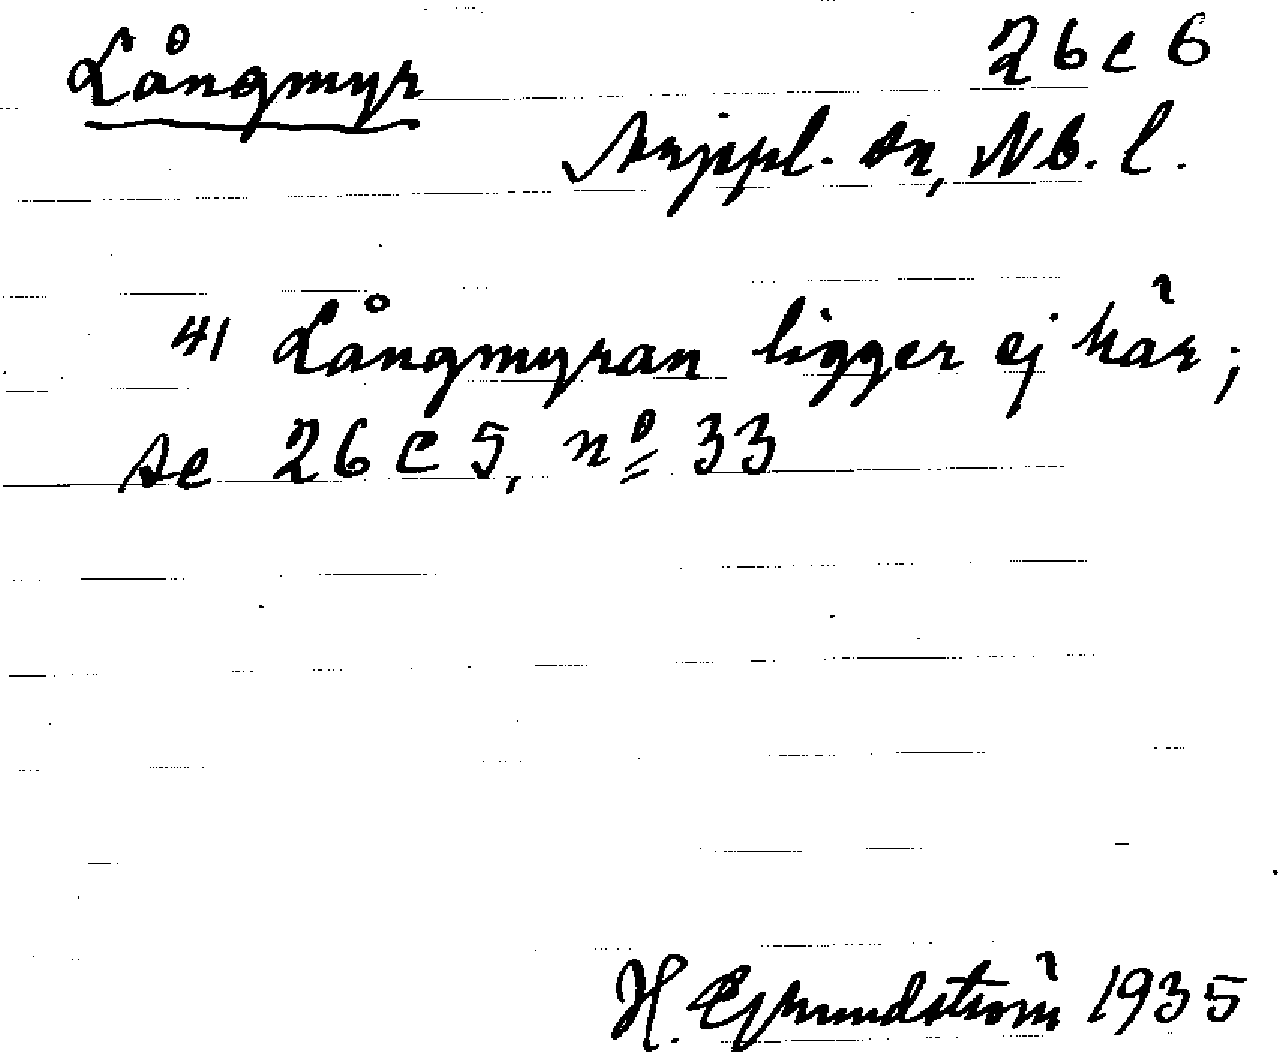 Långmyr
26 c 6
Arjepl. sn, Nb. l.
41 Långmyran ligger ej här;
se 26 C 5, nº 33
H. Gjrundström 1935